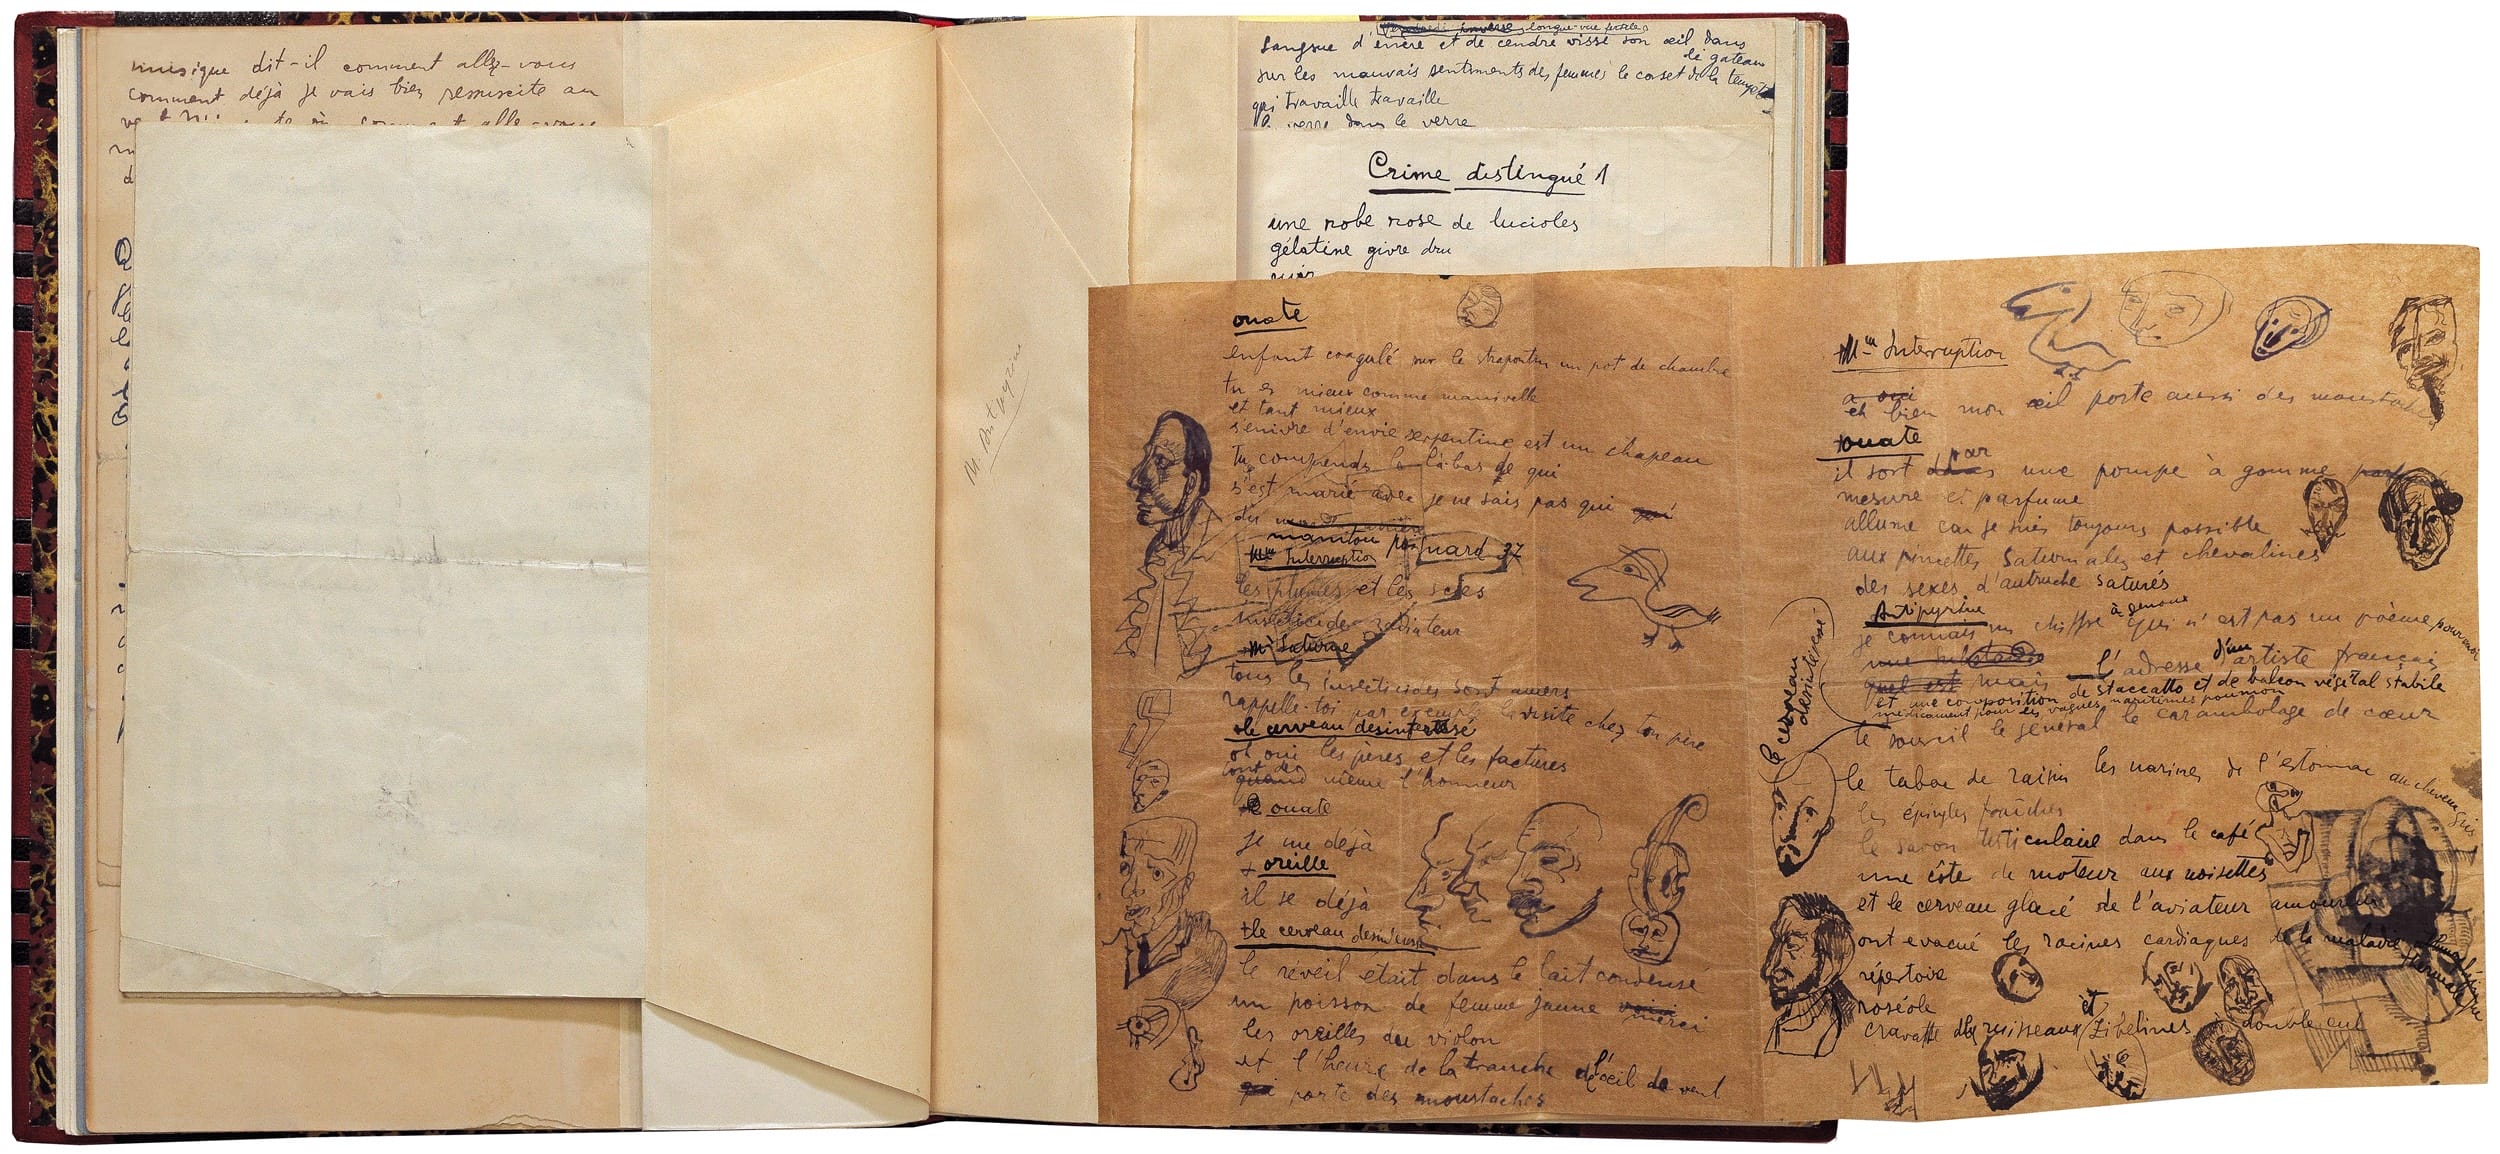 musique dit-il comment allez-vous
comment déjà je vais bien ressuscite au
M. Antipyrine
inverse, longue-vue fossile
Sangsue d'encre et de cendre visse son œil dans
le gateau
sur les mauvais sentiments des femmes le corset de la tempête
qui travaille travaille
le verre dans le verre
Crime distingué 1
une robe rose de lucioles
gélatine givre dru
ouate
enfant coagulé sur le strapontin un pot de chambre
tu es mieux comme manivelle
et tant mieux
s'enivre d'envie serpentine est un chapeau
Tu comprends le là-bas de qui
s'est marié avec je ne sais pas qui qui
des
manitou poignard 37
Mme Interruption
les plumes et les scies
insecticide radiateur
Mr Saturne
tous les insecticides sont amers
rappelle-toi par exemple la visite chez ton père
le cerveau désintéressé
oh oui les pères et les factures
ont de
quand même l'honneur
ouate
je me déjà
+ oreille
il se déjà
+le cerveau désintéressé
le réveil était dans le lait condensé
un poisson de femme jaune voici merci
les oreilles du violon
et l'heure de la tranche de l'œil de vent
qui porte des moustaches
Mme Interruption
a oui
eh bien mon œil porte aussi des moustaches
ouate
il sort dans par une pompe à gomme
mesure et parfume
allume car je suis toujours possible
aux pincettes saturnales et chevalines
des sexes d'autruche saturés
Antipyrine
je connais un chiffre à genoux qui n'est pas un poème pour moi
une substance
quel est mais l'adresse d'un artiste français
et une composition de staccatto et de balcon végétal stabile
médicament pour les vagues maritimes poumon
le sourcil le général le carambolage de cœur
le cerveau
désintéressé
le tabac de raisin les narines de l'estomac au cheveux gris
les épingles fraîches
le savon testiculaire dans le café
une côte de moteur aux noisettes
et le cerveau glacé de l'aviateur amoureux
ont évacué les racines cardiaques de la maladie
répertoire
roséole
cravatte des ruisseaux et zibelines à double cul